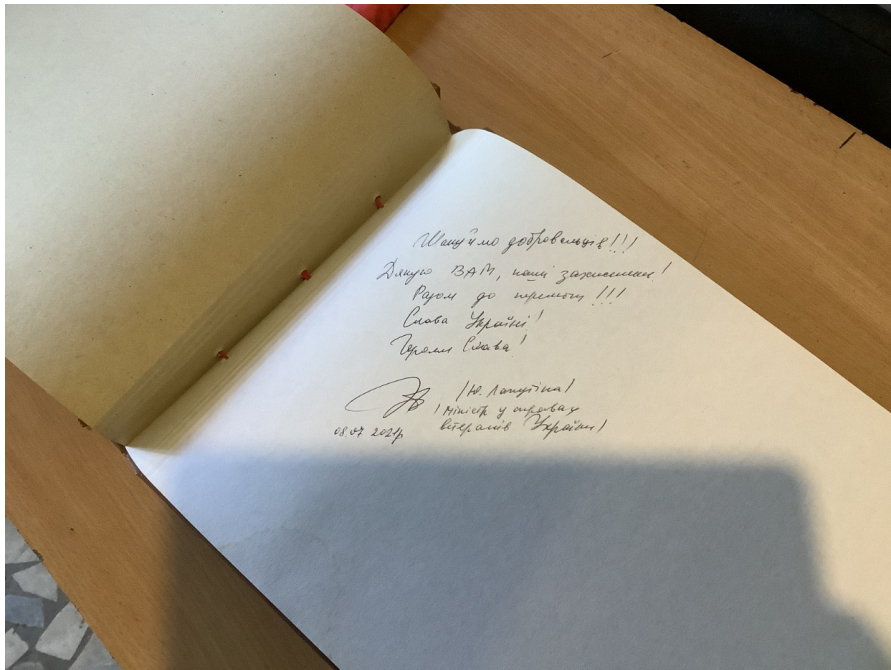 Шануймо добровольців!!!
Дякую ВАМ, наші захисники!
Разом до перемоги!!!
Слава Україні!
Героям Слава!
/Ю. Лапутіна/
/Міністр у справах
ветеранів України/
08.07.2021р